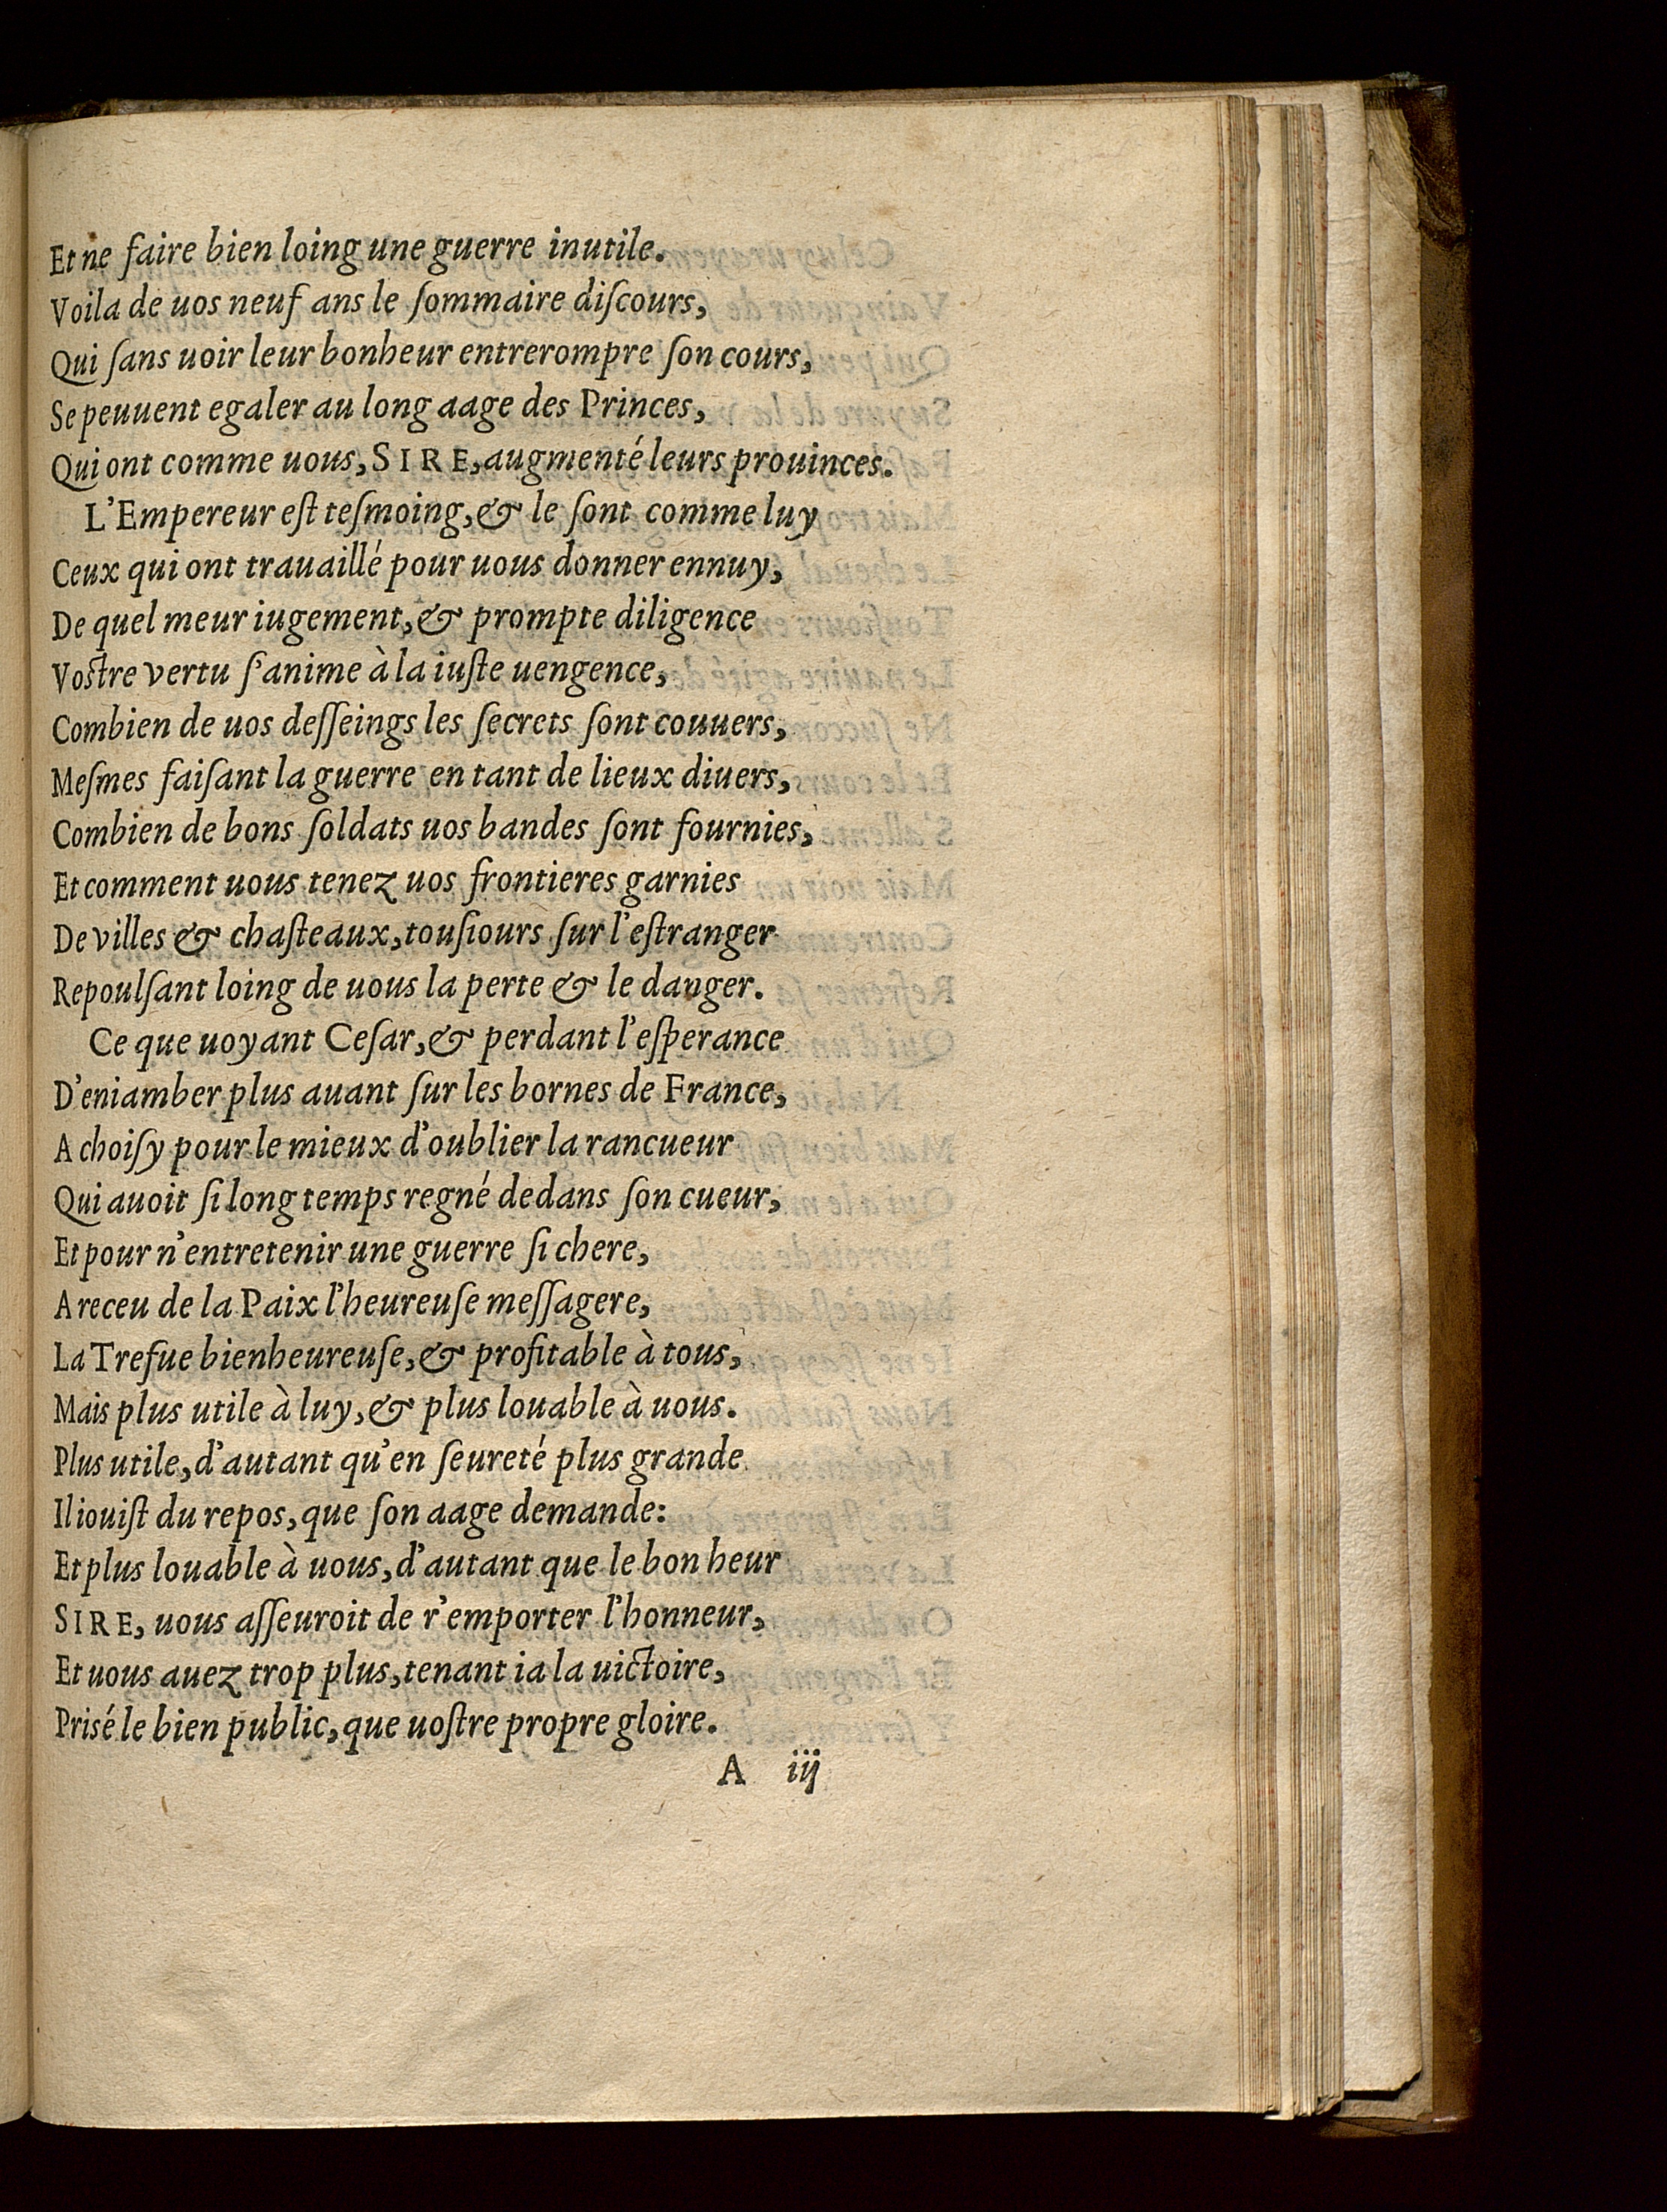 Et ne faire bien loing une guerre inutile.
Voila de uos neuf ans le ſommaire diſcours,
Qui ſans uoir leur bonheur entrerompre ſon cours,
Se peuuent egaler au long aage des Princes,
Qui ont comme uous, SIRE, augmenté leurs prouinces.
L'Empereur eſt teſmoing, & le ſont comme luy
Ceux qui ont trauaillé pour uous donner ennuy,
De quel meur iugement, & prompte diligence
Voſtre vertu ſ'anime à la iuſte uengence,
Combien de uos deſſeings les ſecrets ſont couuers,
Meſmes faiſant la guerre en tant de lieux diuers,
Combien de bons ſoldats uos bandes ſont fournies,
Et comment uous tenez uos frontieres garnies
De villes & chaſteaux, touſiours ſur l'eſtranger
Repoulſant loing de uous la perte & le danger.
Ce que uoyant Ceſar, & perdant l'eſperance
D'eniamber plus auant ſur les bornes de France,
A choiſy pour le mieux d'oublier la rancueur
Qui auoit ſi long temps regné dedans ſon cueur,
Et pour n'entretenir une guerre ſi chere,
A receu de la Paix l'heureuſe meſſagere,
La Trefue bienheureuſe, & profitable à tous,
Mais plus utile à luy, & plus louable à uous.
Plus utile, d'autant qu'en ſeureté plus grande
Il iouiſt du repos, que ſon aage demande:
Et plus louable à uous, d'autant que le bon heur
SIRE, uous aſſeuroit de r'emporter l'honneur,
Et uous auez trop plus, tenant ia la uictoire,
Prisé le bien public, que uoſtre propre gloire.
A iij